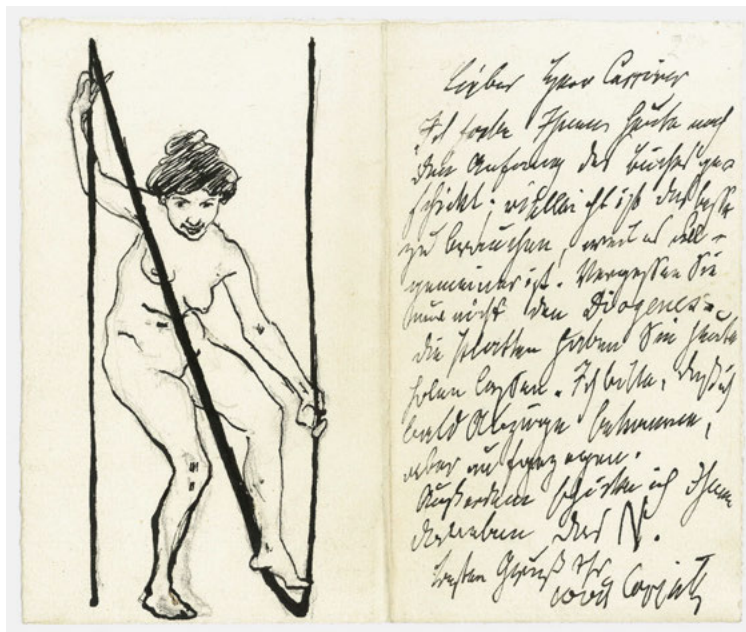 Lieber Herr Cassirer
Ich habe Ihnen heute noch
den Anfang des Buches ge-
schickt; vielleicht ist das besser
zu brauchen, weil es all-
gemeiner ist. Vergessen Sie
nur nicht den Diogenes -
die Platten haben Sie heute
holen lassen. Ich bitte, daß ich
bald Abzüge bekomme,
aber aufgezogen.
Außerdem schicke ich Ihnen
daneben das N.
Besten Gruß Ihr
Lovis Corinth